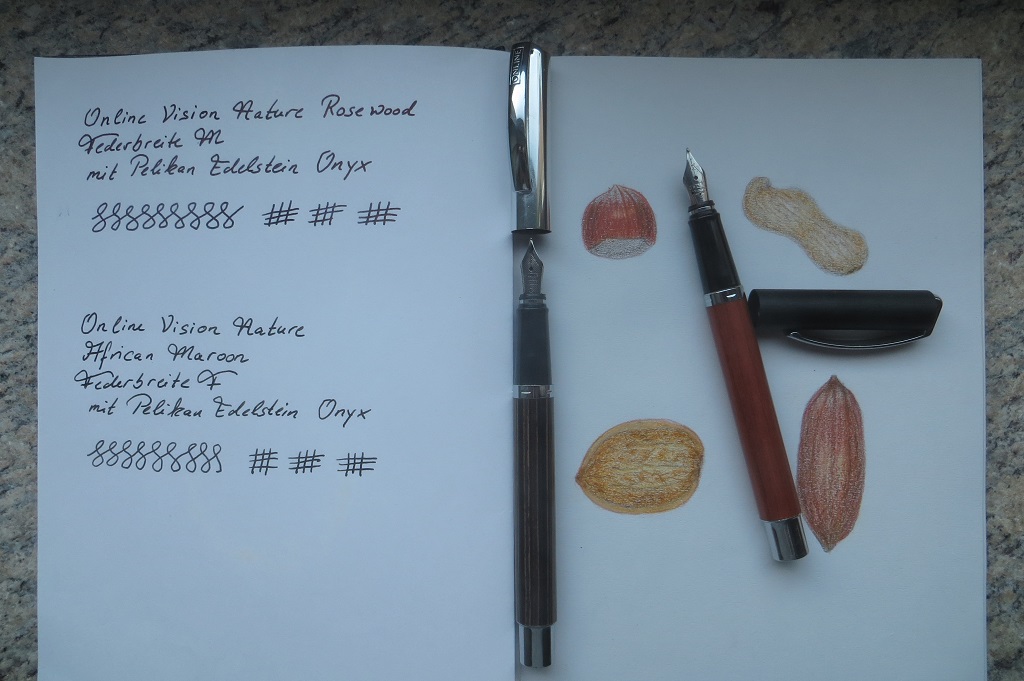 Online Vision Nature Rosewood
Federbreite M
mit Pelikan Edelstein Onyx
Online Vision Nature
African Maroon
Federbreite F
mit Pelikan Edelstein Onyx
ONLINE